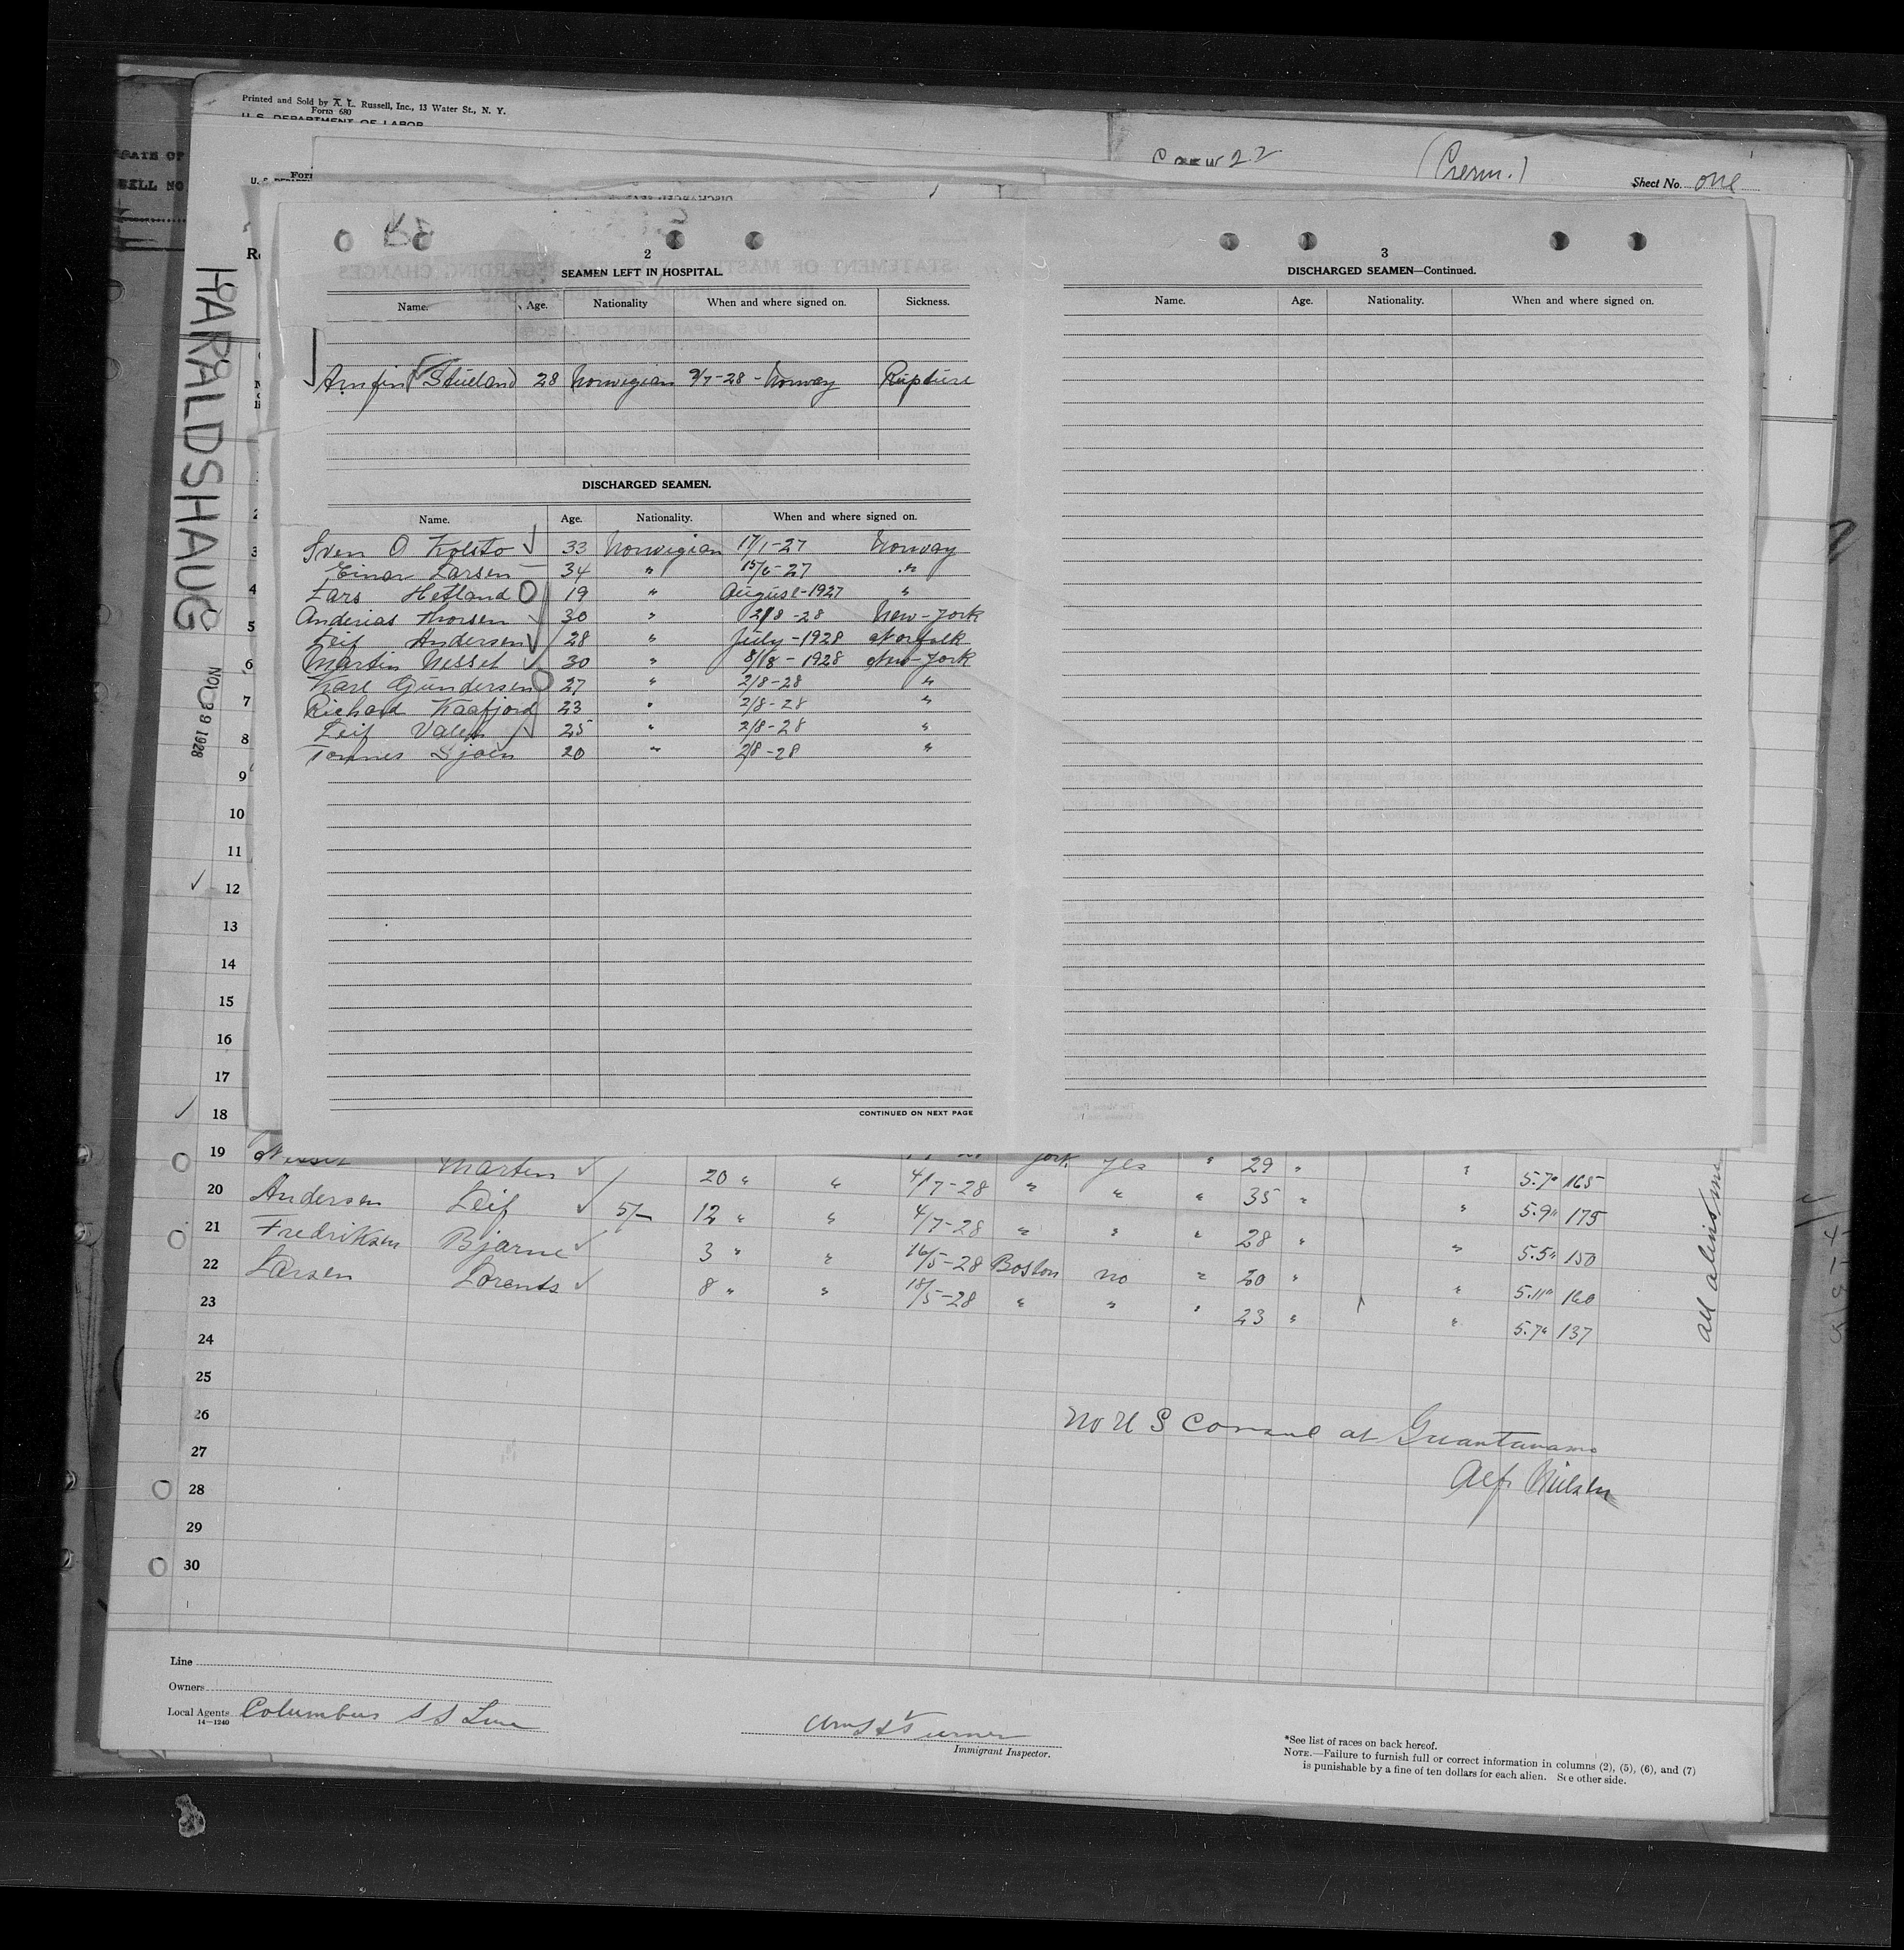 Printed and Sold by A. L. Russell, Inc., 13 Water St., N. Y.
Form 680
U. S. DEPARTMENT OF LABOR
Crew 22
Sheet No. one
HARALDSHAUG
NOV 9 1928
2
SEAMEN LEFT IN HOSPITAL.
Name. Age. Nationality When and where signed on. Sickness.
Arnfin 28 Norwegian 9/7-28 - Norway Rupture
DISCHARGED SEAMEN.
Name. Age. Nationality. When and where signed on.
Sven O Kolsto 33 Norwegian 17/1-27 Norway
Einar Larsen 34 " 15/6-27 "
Lars Hetland 19 " August-1927 "
Anderias Thorsen 30 " 2/8-28 New-York
Leif Andersen 28 " July-1928 Norfolk
Martin Nesset 30 " 8/8-1928 New-York
Karl Gundersen 27 " 2/8-28 "
Richard Kaafjord 23 " 2/8-28 "
Leif Valen 25 " 2/8-28 "
Tonnes 20 " 2/8-28 "
CONTINUED ON NEXT PAGE
3
DISCHARGED SEAMEN—Continued.
Name. Age. Nationality. When and where signed on.
3
4
5
6
7
8
9
10
11
12
13
14
15
16
17
18
19 Martin 20 " " 4/7-28 York yes " 29 " " 5.7" 165
20 Andersen Leif 5/- 12 " " 4/7-28 " " " 35 " " 5.9" 175
21 Fredriksen Bjarne 3 " " 16/5-28 Boston " " 28 " " 5.5" 150
22 Larsen Lorents 8 " " 18/5-28 " no " 20 " " 5.11" 160
23 " " " 23 " " 5.7" 137
24
25
26
27
28
29
30
all aliens
No U S Consul at Guantanamo
Alf Nielsen
Line
Owners
Local Agents Columbus S S Line
14—1240
Turner
Immigrant Inspector.
*See list of races on back hereof.
NOTE.—Failure to furnish full or correct information in columns (2), (5), (6), and (7)
is punishable by a fine of ten dollars for each alien. See other side.